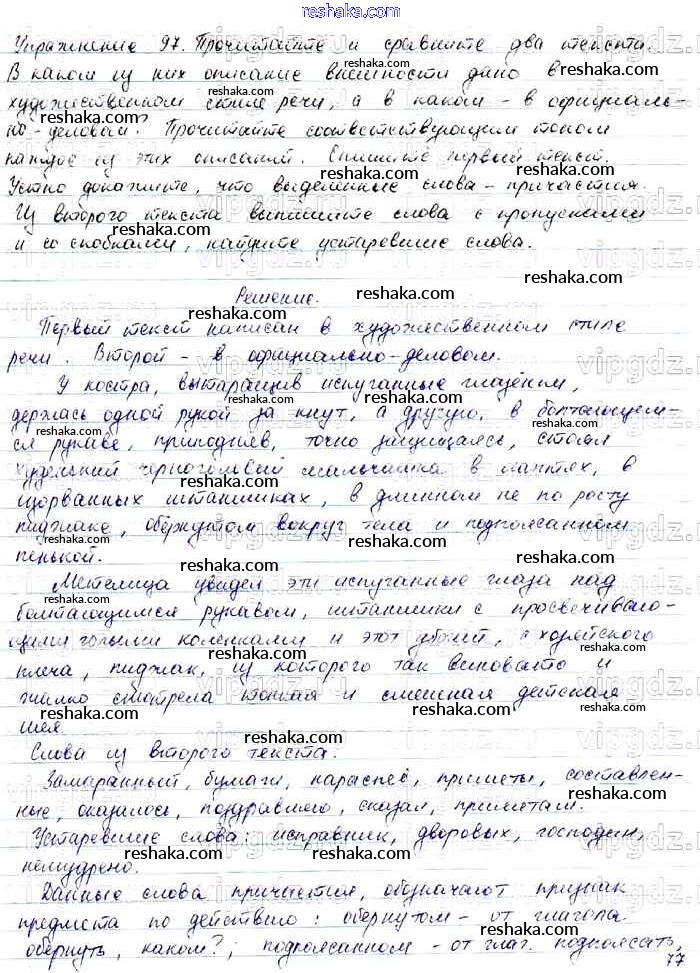 reshaka.com
Упражнение 97. Прочитайте и сравните два текста.
В каком из них описание внешности дано в
художественном стиле речи, а в каком - в официаль-
но-деловом? Прочитайте соответствующим тоном
каждое из этих описаний. Спишите первый текст.
Устно докажите, что выделенные слова - причастия.
Из второго текста выпишите слова с пропусками
и со скобками, найдите устаревшие слова.
Решение.
Первый текст написан в художественном стиле
речи. Второй - в официально-деловом.
У костра, вытаращив испуганные глазёнки,
держась одной рукой за кнут, а другую, в болтающем-
ся рукаве, приподняв, точно защищаясь, стоял
худенький черноголовый мальчишка в лаптях, в
изорванных штанишках, в длинном не по росту
пиджаке, обёрнутом вокруг тела и подпоясанном
пенькой.
Метелица увидел эти испуганные глаза над
болтающимся рукавом, штанишки с просвечиваю-
щими голыми коленками и этот убогий, с хозяйского
плеча, пиджак, из которого так виновато и
жалко смотрела тонкая и смешная детская
шея.
Слова из второго текста.
Замаранный, бумаги, нараспев, приметы, составлен-
ные, оказалось, поздравляю, сказал, приметам.
Устаревшие слова: исправник, дворовых, господин,
немудрено.
Данные слова причастия, обозначают признак
предмета по действию: обернутом - от глагола
обернуть, каком?; подпоясанном - от глаг. подпоясать,
77